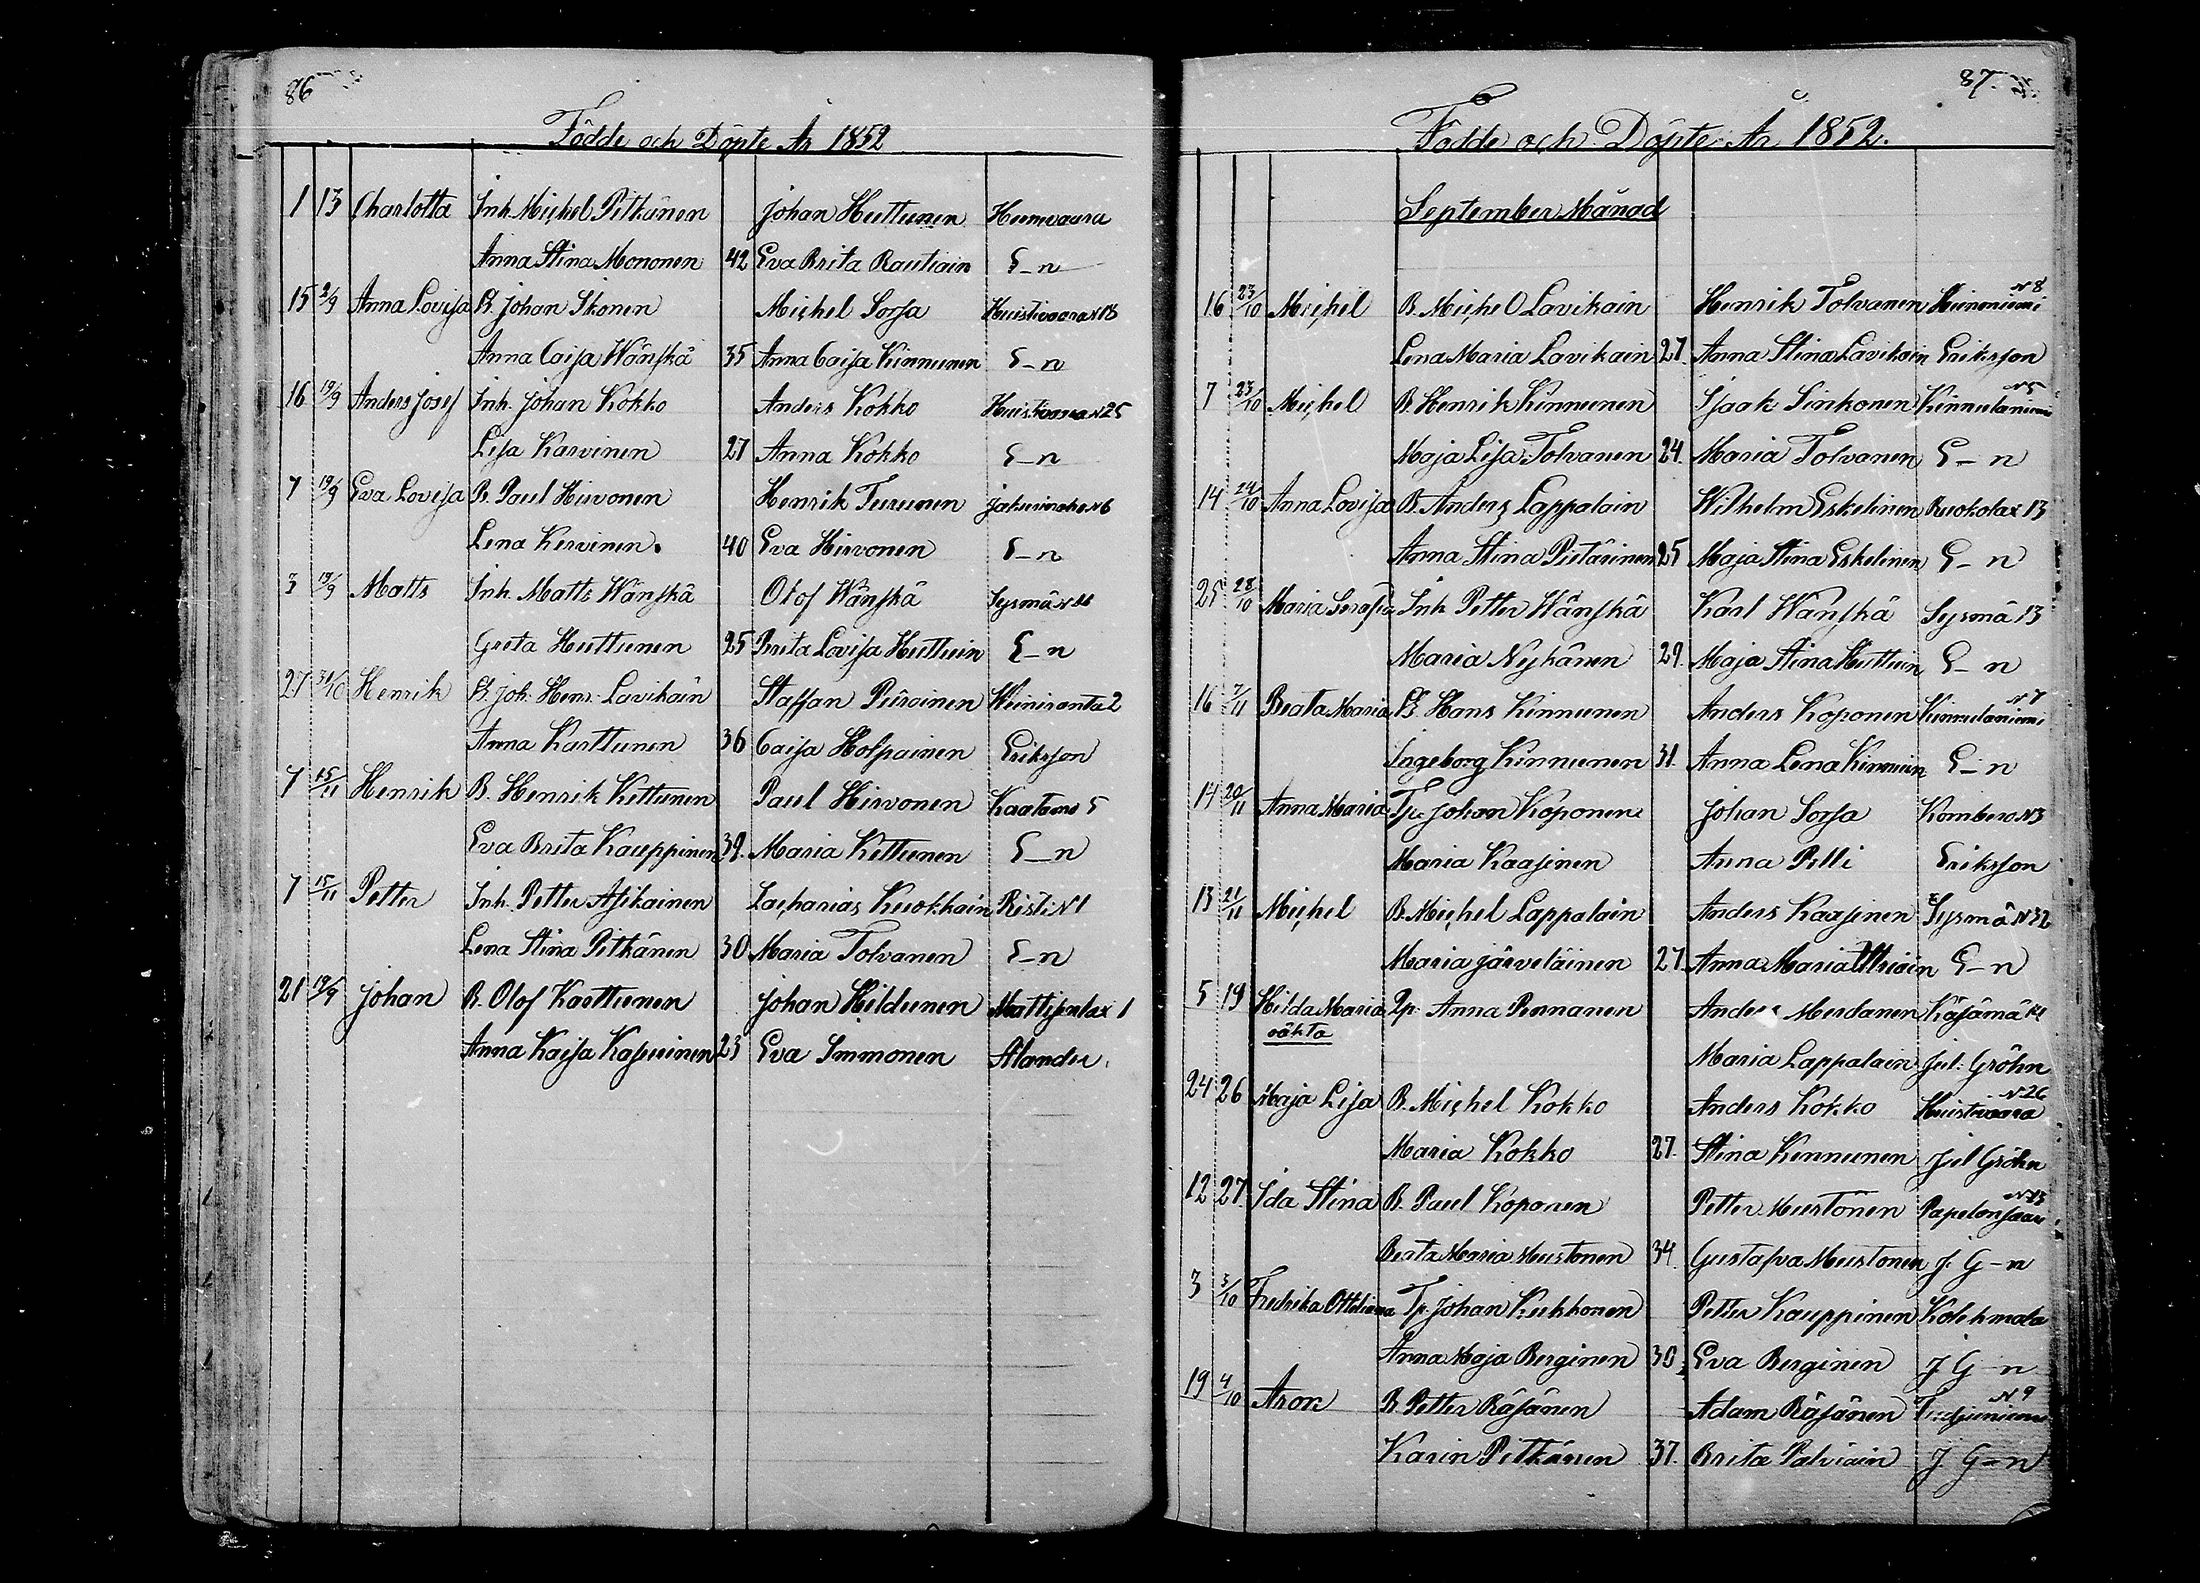 86
Födde och Döpte År 1852
1 13 Charlotta Inh. Michel Pitkänen Johan Huttunen
Anna Stina Mononen 42 Eva Brita Rautiain E-n
15 2/9 Anna Lovisa B. Johan Ikonen Michel Sorsa Huistivaara N 18
Anna Caisa Wänskä 35 Anna Caisa Kinnunen E-n
16 19/9 Anders Josef Inh. Johan Kokko Anders Kokko N 25
Lisa Karvinen 27 Anna Kokko E-n
7 19/9 Eva Lovisa B. Paul Hirvonen Henrik Turunen
Lena Kervinen 40 Eva Hirvonen E-n
3 19/9 Matts Inh. Matts Wänskä Olof Wänskä Sysmä
Greta Huttunen 25 Brita Lovisa Huttuin E-n
27 31/10 Henrik B. Joh. Henr. Lavikain Staffan Piiroinen Kiiniranta 2
Anna Karttunen 36 Caisa Holpainen Eriksson
7 15/11 Henrik B. Henrik Kettunen Paul Hirvonen Kaatamo 5
Eva Brita Kauppinen 39. Maria Kettunen E-n
7 15/11 Petter Inh. Petter Asikainen Zacharias Kuokkain Risti N 1
Lena Stina Pitkänen 30 Maria Tolvanen E-n
21 19/9 Johan B. Olof Karttunen Johan Hildunen Mattisenlax 1
Anna Kaisa Kasurinen 23 Eva Immonen Alander
87.
Födde och Döpte År 1852.
September Månad
16 23/10 Michel B. Michel Lavikain Henrik Tolvanen Niinoniemi N 8
Lena Maria Lavikain 27. Anna Stina Lavikain Eriksson
7 23/10 Michel B. Henrik Kinnunen Isaak Sinkonen Kinnulaniemi N 5
Maja Lisa Tolvanen 24. Maria Tolvanen E-n
14 24/10 Anna Lovisa B. Anders Lappalain Wilhelm Eskelinen Ruokolax 13
Anna Stina Pietarinen 25 Maja Stina Eskelinen E-n
25 28/10 Maria Serafia Inh. Petter Wänskä Karl Wänskä Sysmä 13
Maria Nykänen 29. Maja Stina Huttuin E-n
16 7/11 Beata Maria B. Hans Kinnunen Anders Koponen Kinnulaniemi N 7
Ingeborg Kinnunen 31. Anna Lena Kinnuin E-n
14 20/11 Anna Maria Tp. Johan Koponen Johan Sorsa Kombero N 3
Maria Kaasinen Anna Pelli Eriksson
13 21/11 Michel B. Michel Lappalain Anders Kaasinen Sysmä N 32
Maria Järveläinen 27. Anna Maria E-n
5 19 Hilda Maria Anna Pennanen Anders Käsämä 14
oäkta
Maria Lappalain Jul: Gröhn
24 26 Maja Lisa B. Michel Kokko Anders Kokko Huistivaara N 26
Maria Kokko 27. Stina Kinnunen Jul Gröhn
12 27. Ida Stina B. Paul Koponen Petter Mustonen Papelonsaari N 13
Beata Maria Mustonen 34. Gustafva Mustonen J. G-n
3 3/10 Fredrika Ottiliana Tp. Johan Kukkonen Petter Kauppinen
Anna Maja Berginen 30 Eva Berginen J G-n
19 4/10 Aron B. Petter Räsänen Adam Räsänen N 9
Karin Pitkänen 37. Brita Palviain J. G-n